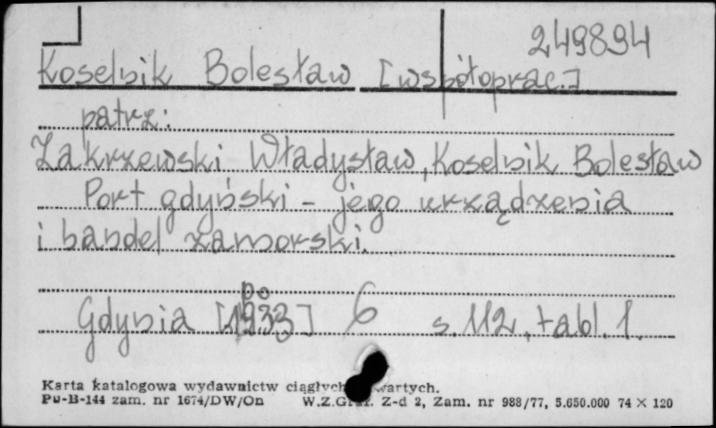 249894
Koselnik Bolesław [współoprac.]
patrz:
Zakrzewski Władysław, Koselnik Bolesław
Port gdyński - jego urządzenia
i handel zamorski.
po
Gdynia [1933] 6 s. 112, tabl. 1.
Karta katalogowa wydawnictw ciągłych
Pu-B-144 zam. nr 1674/DW/On W.Z.Graf. Z-d 2, Zam. nr 988/77, 5.650.000 74 × 120